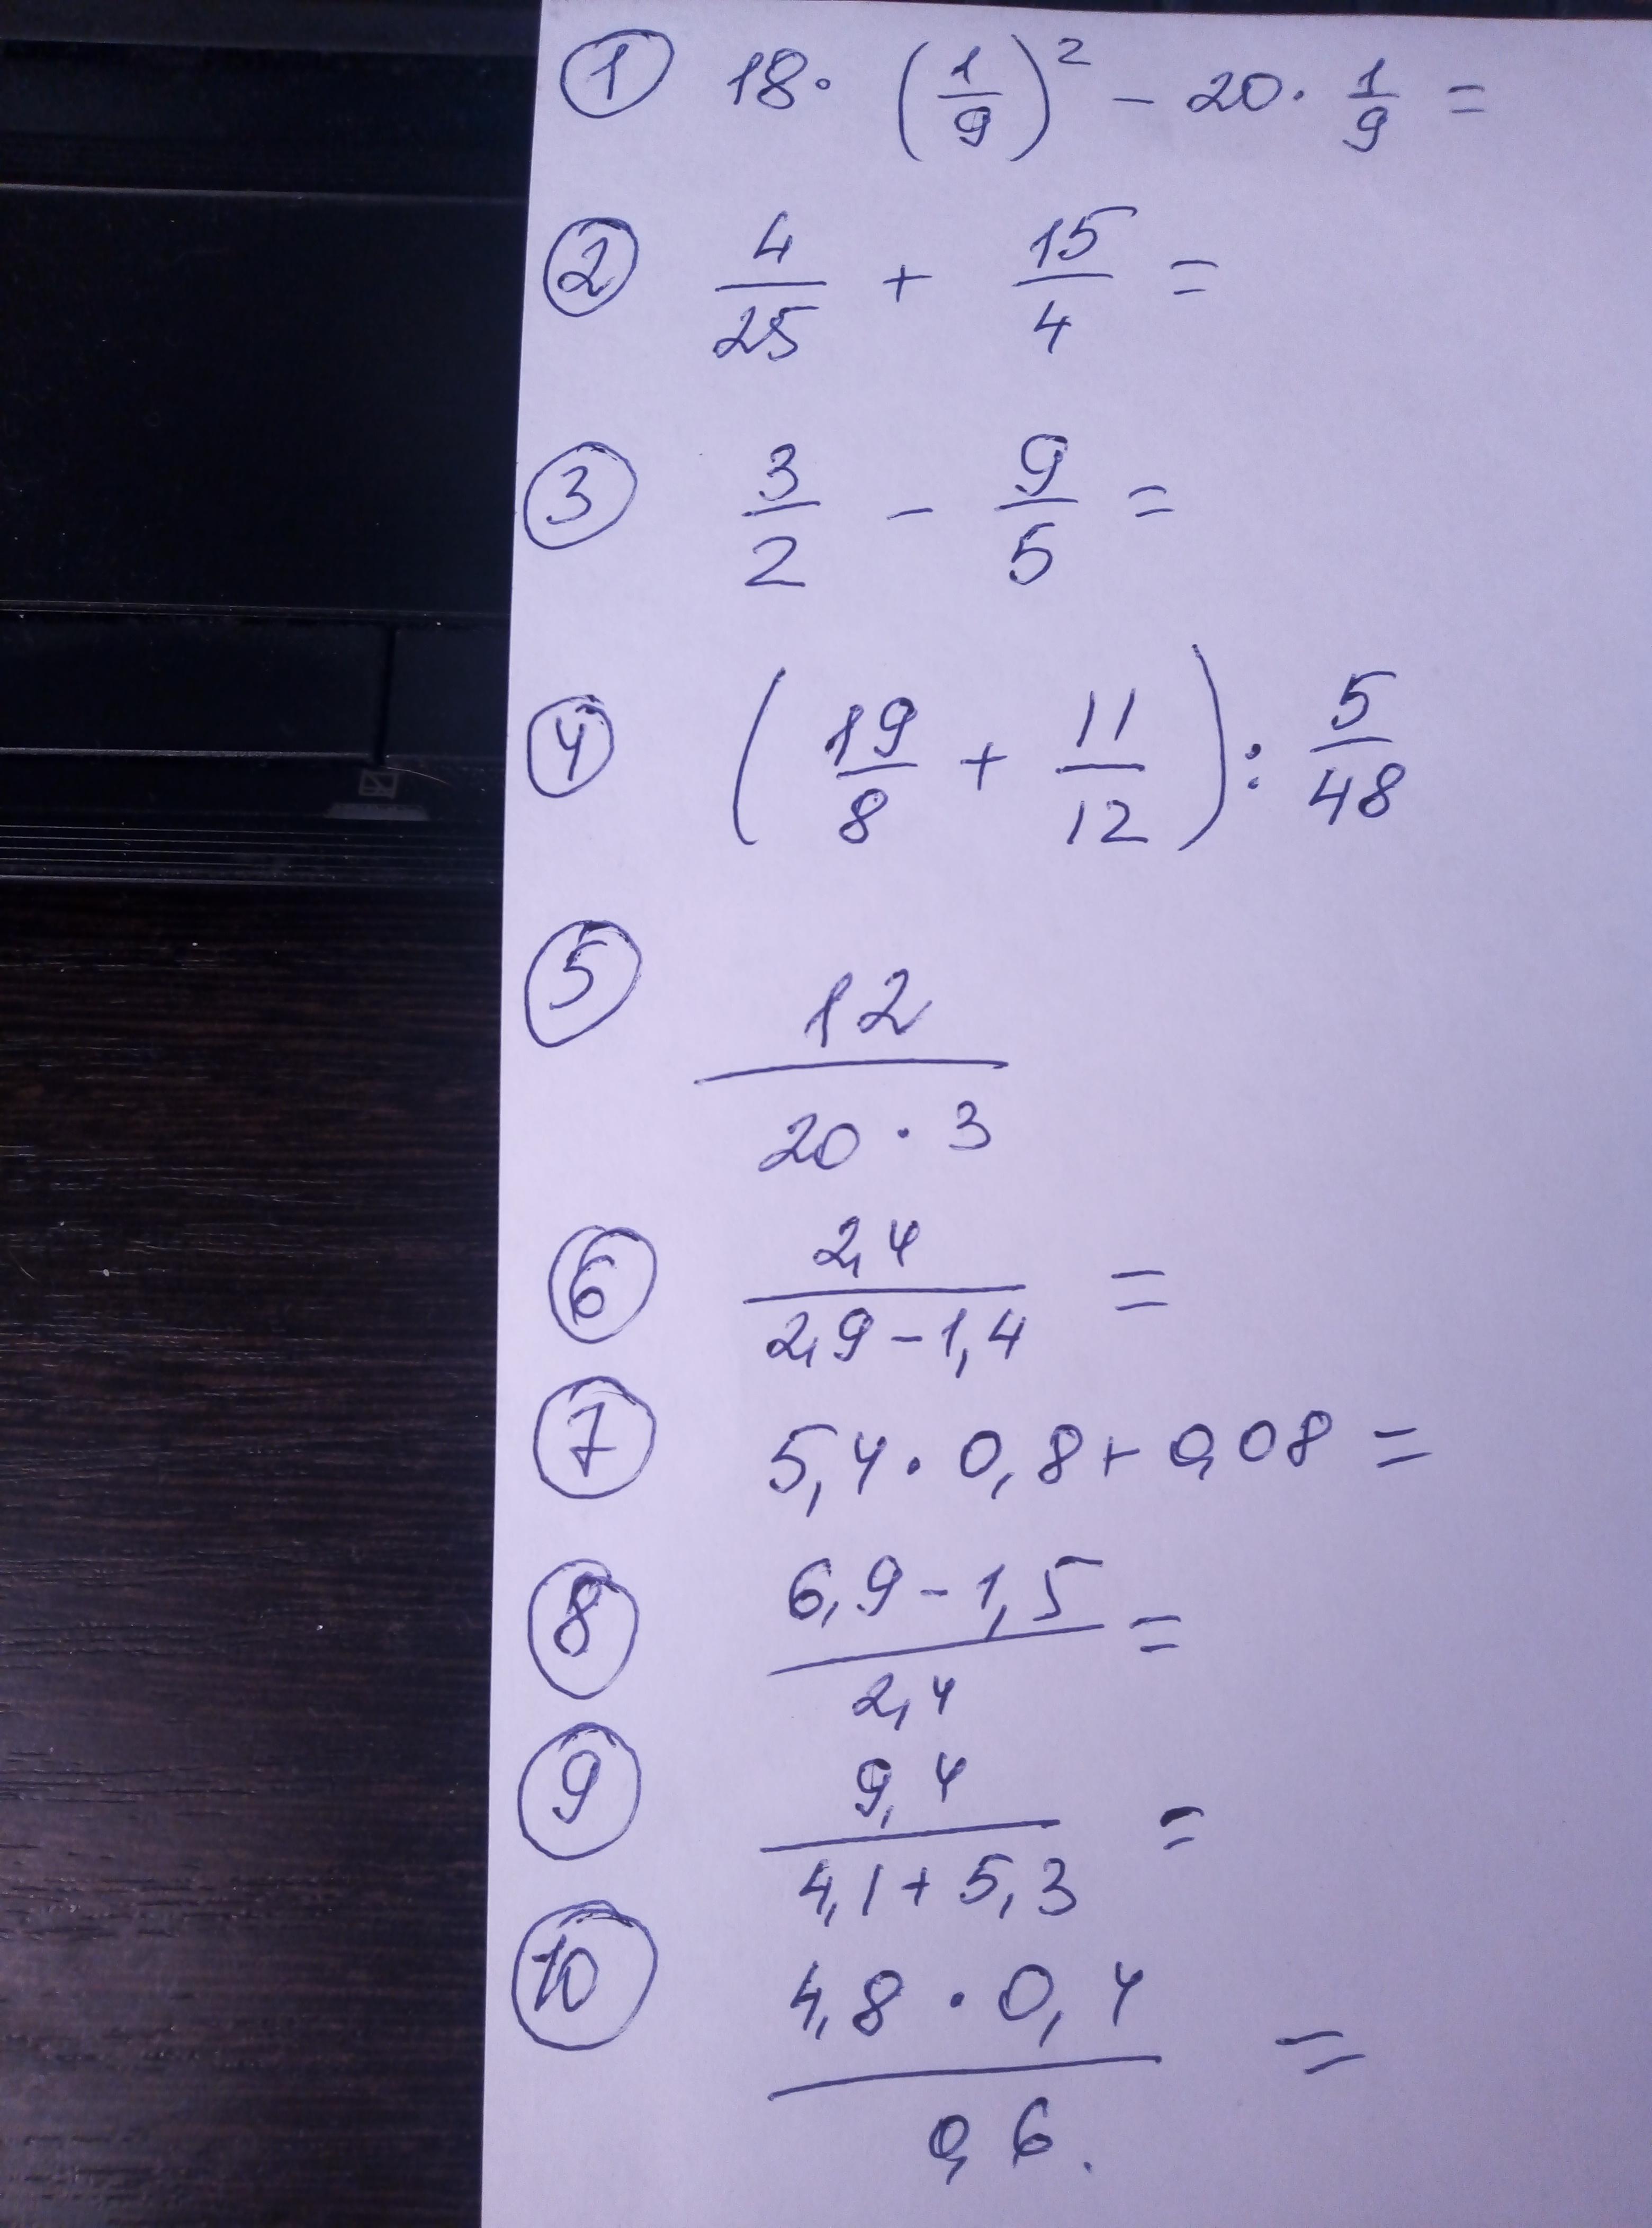 ① 18 · (1/9)² − 20 · 1/9 =
② 4/25 + 15/4 =
③ 3/2 − 9/5 =
④ (19/8 + 11/12) : 5/48
⑤ 12/(20 · 3)
⑥ 2,4/(2,9 − 1,4) =
⑦ 5,4 · 0,8 + 0,08 =
⑧ (6,9 − 1,5)/2,4 =
⑨ 9,4/(4,1 + 5,3) =
⑩ (4,8 · 0,4)/0,6. =